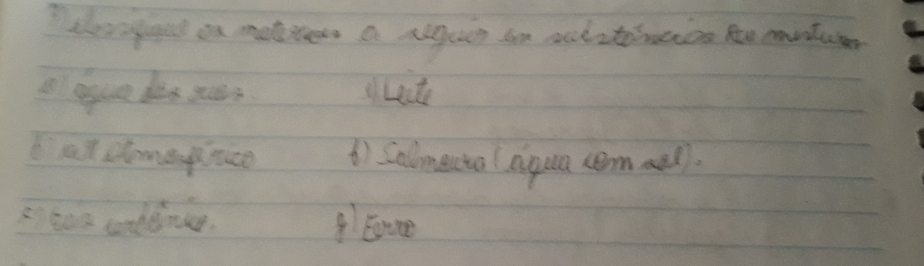 Classifique os materiais a seguir em substâncias ou misturas
a) água dos rios. e) Leite
b) ar atmosférico f) Salmoura (água com sal).
c) Gás carbônico. g) Ferro